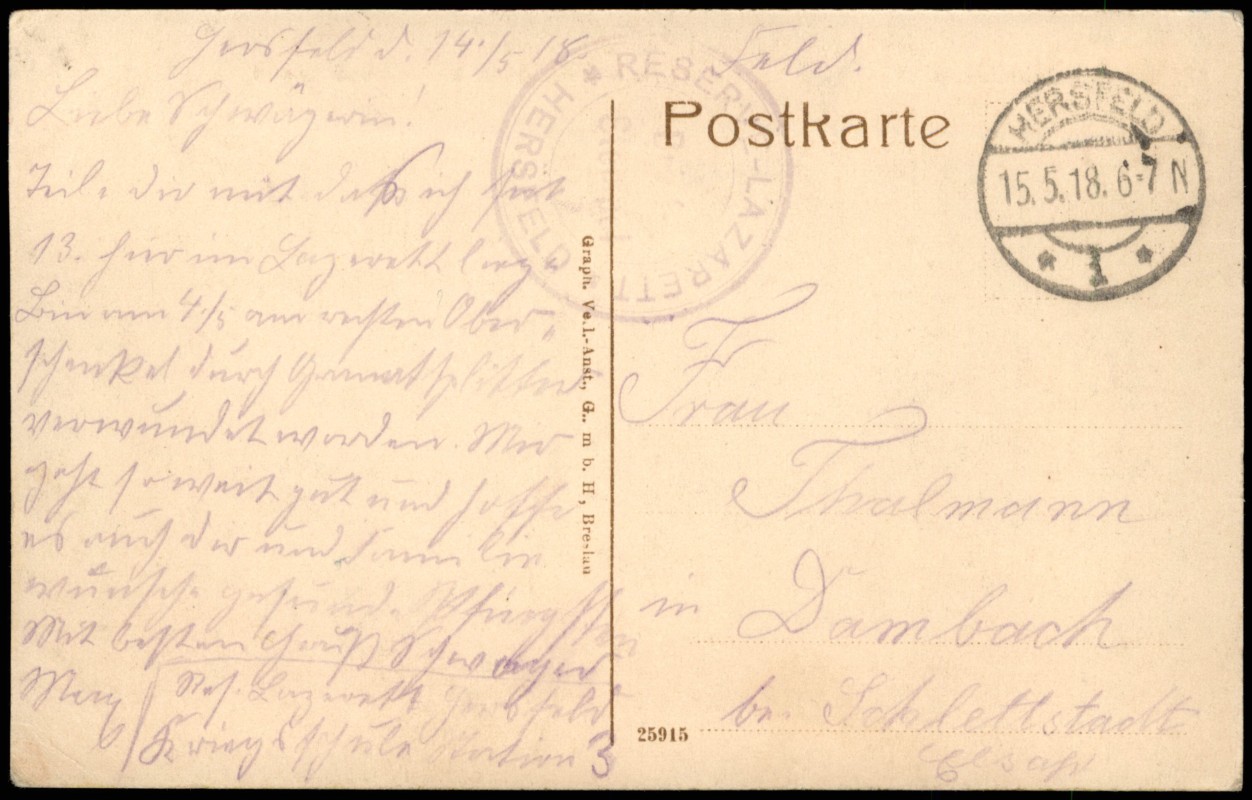 Hersfeld d. 14./5 18.
Liebe Schwägerin!
Teile dir mit daß ich seit
13. hier im Lazarett liege
Bin am 4./5 am rechten Ober-
schenkel durch Granatsplitter
verwundet worden. Mir
geht soweit gut und hoffe
es auch dir und Familie
wünsche gesunde Pfingsten
Mit besten Gruß Schwager
Max
Res. Lazarett Hersfeld
Kriegsschule Station 3
Feld.
Postkarte
RESERVE-LAZARETT * HERSFELD *
HERSFELD
15.5.18. 6-7 N
* 1 *
Graph. Verl.-Anst., G. m. b. H., Breslau
Frau
Thalmann
in Dambach
bei Schlettstadt
Elsaß
25915